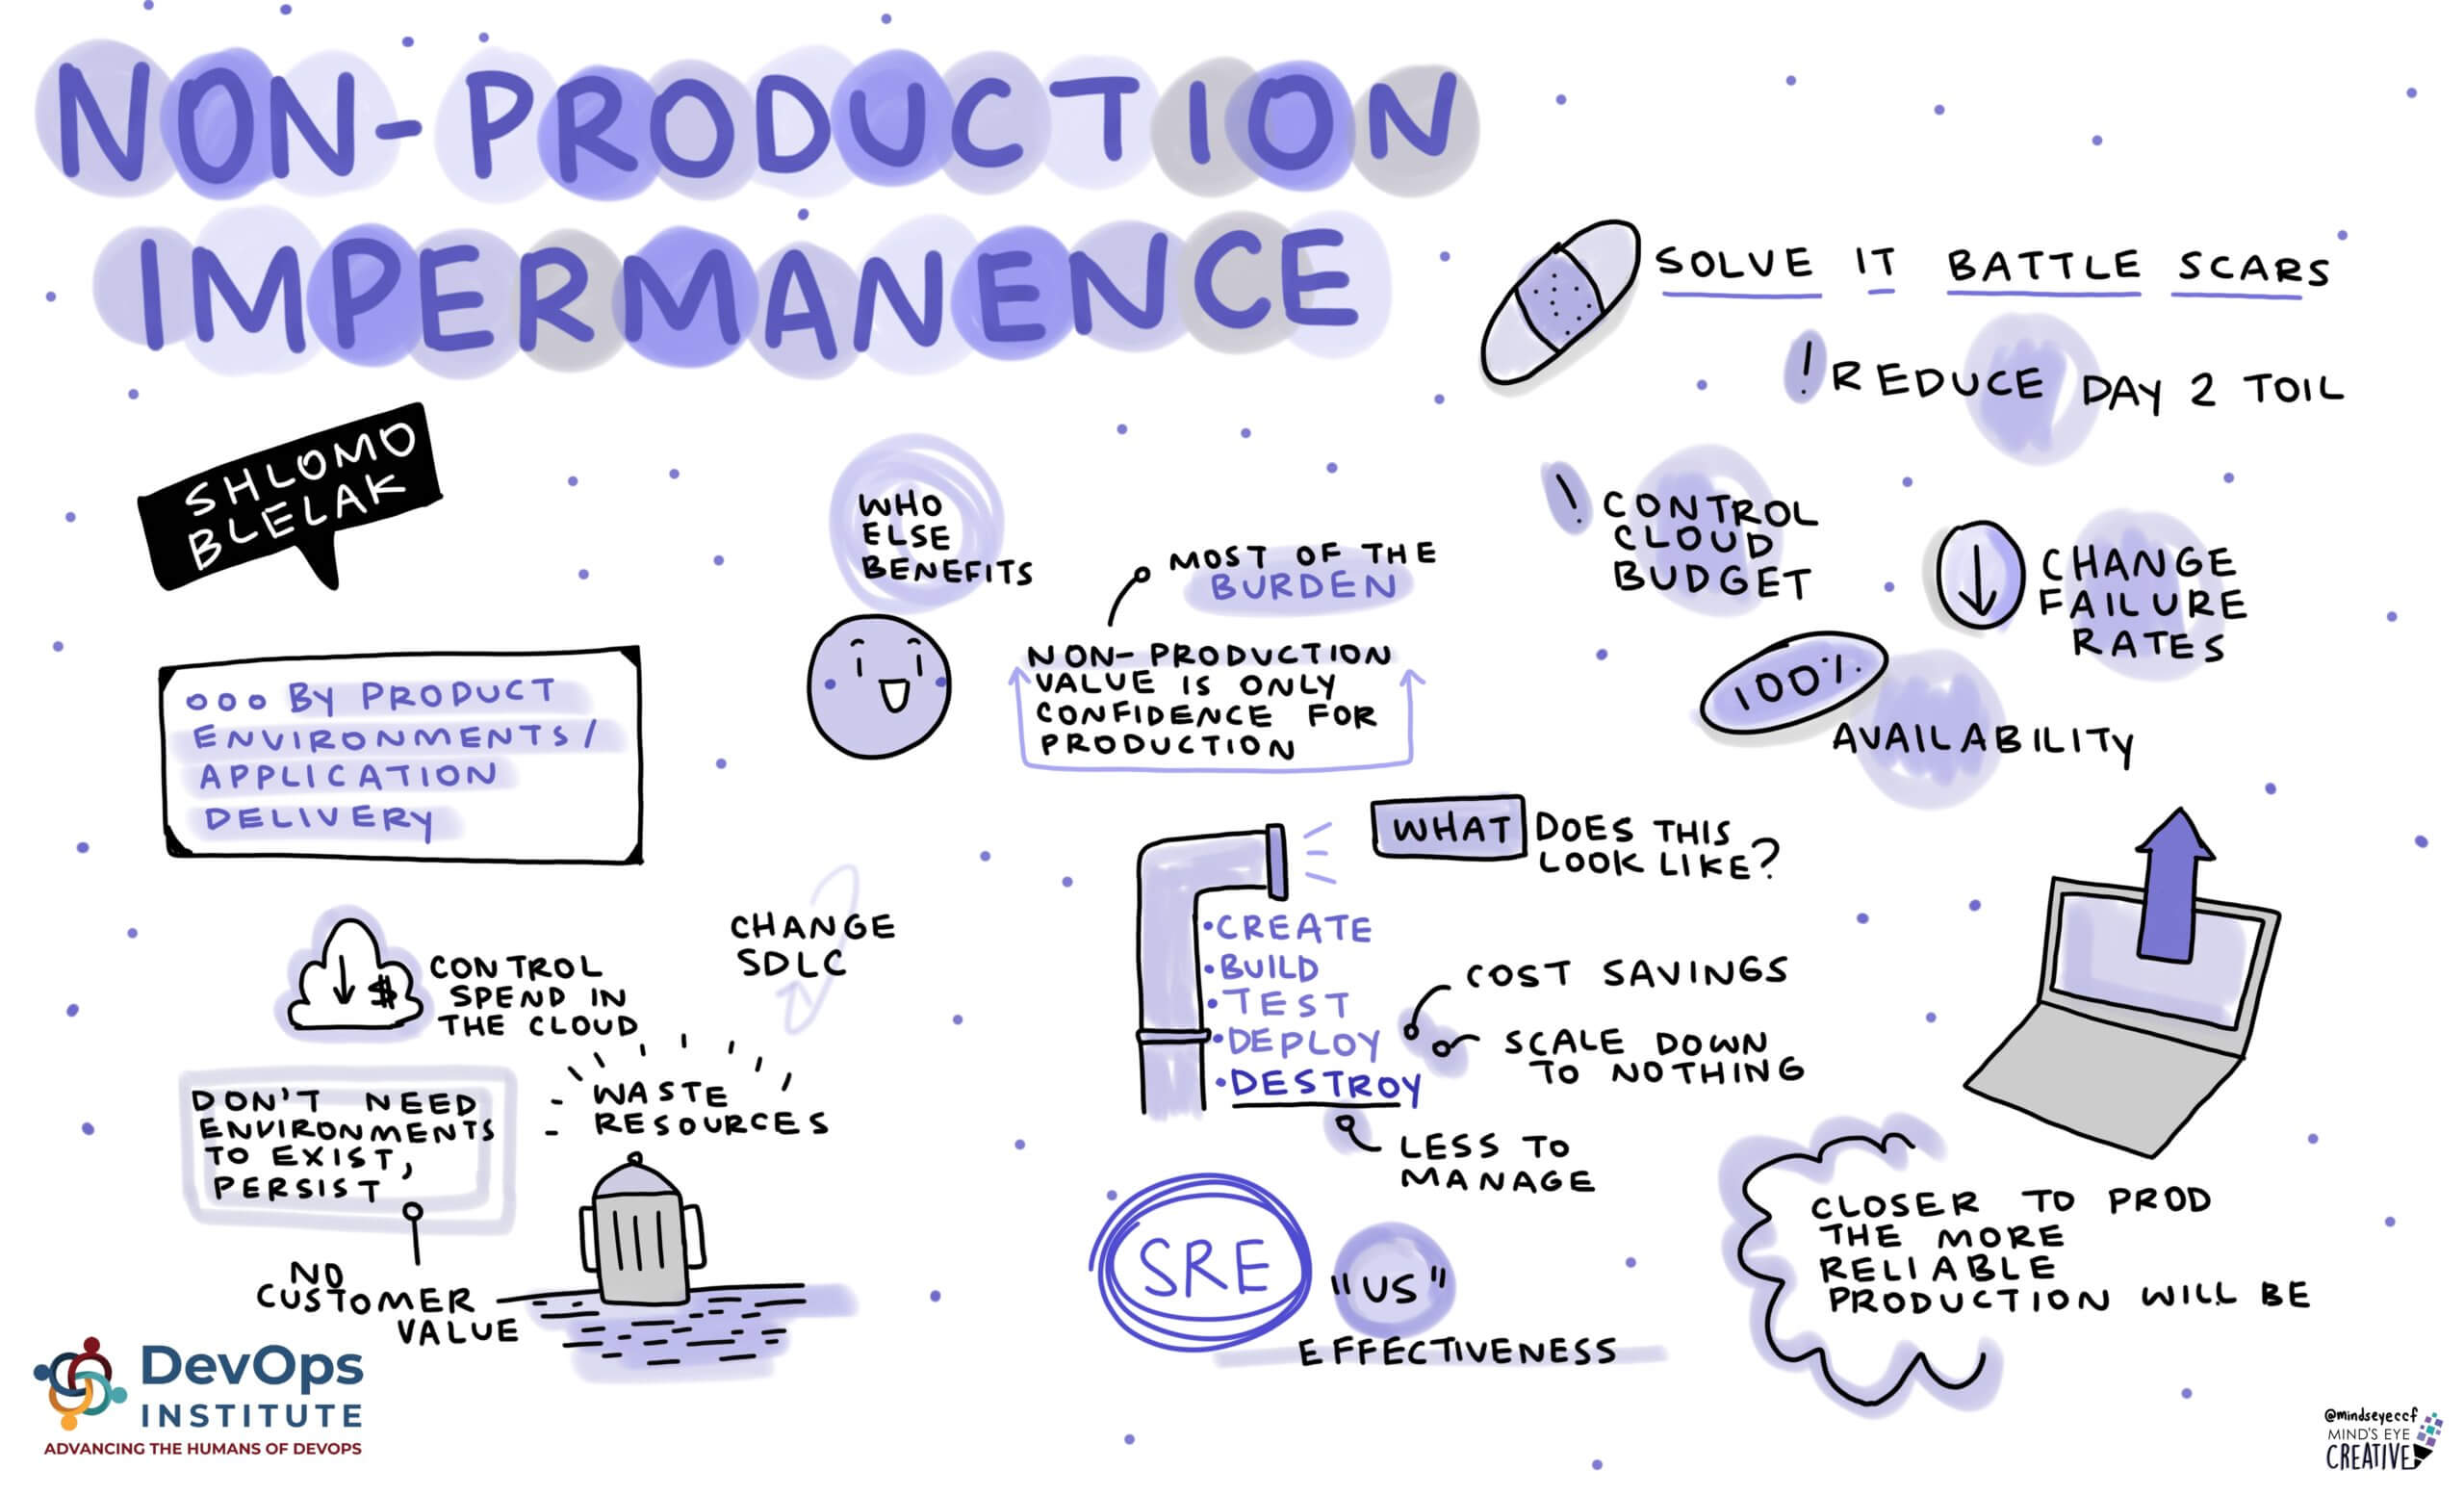 NON-PRODUCTION
IMPERMANENCE
SHLOMO
BLELAK
BY PRODUCT
ENVIRONMENTS/
APPLICATION
DELIVERY
CONTROL
SPEND IN
THE CLOUD
$
CHANGE
SDLC
DON'T NEED
ENVIRONMENTS
TO EXIST,
PERSIST
NO
CUSTOMER
VALUE
WASTE
RESOURCES
WHO
ELSE
BENEFITS
MOST OF THE
BURDEN
NON-PRODUCTION
VALUE IS ONLY
CONFIDENCE FOR
PRODUCTION
SOLVE IT BATTLE SCARS
! REDUCE DAY 2 TOIL
! CONTROL
CLOUD
BUDGET
CHANGE
FAILURE
RATES
100%
AVAILABILITY
WHAT DOES THIS
LOOK LIKE?
• CREATE
• BUILD
• TEST
• DEPLOY
• DESTROY
COST SAVINGS
SCALE DOWN
TO NOTHING
LESS TO
MANAGE
SRE
"US"
EFFECTIVENESS
CLOSER TO PROD
THE MORE
RELIABLE
PRODUCTION WILL BE
DevOps
INSTITUTE
ADVANCING THE HUMANS OF DEVOPS
@mindseyeccf
MIND'S EYE
CREATIVE